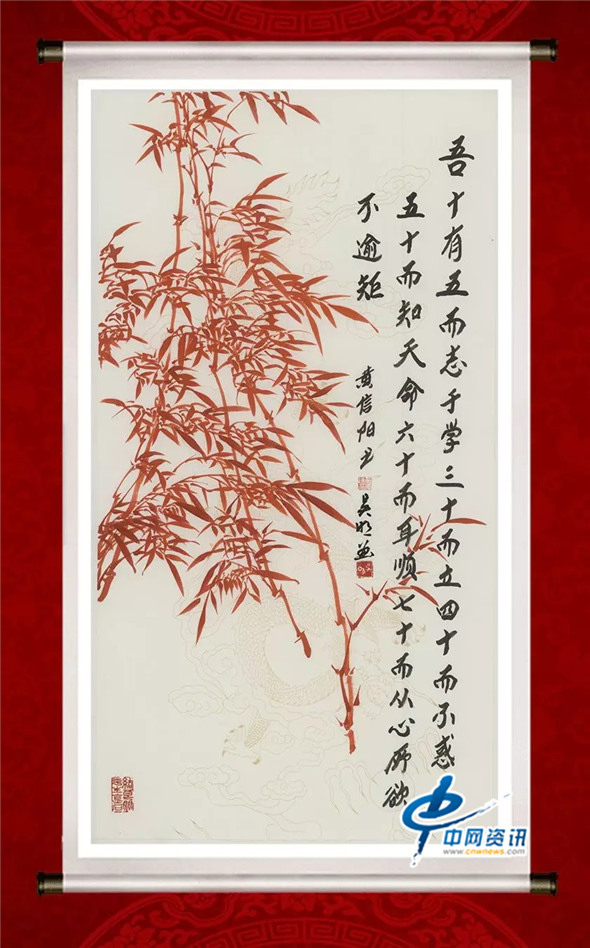 吾十有五而志于学三十而立四十而不惑
五十而知天命六十而耳顺七十而从心所欲
不逾矩
黄信阳书
吴明画
中网资讯
www.cnwnews.com